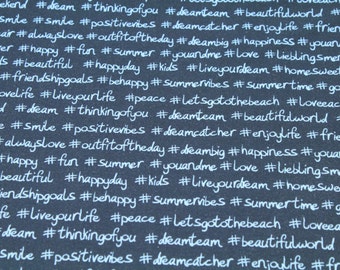 #dream #thinkingofyou #dreamteam #beautifulworld
#smile #positivevibes #dreamcatcher #enjoylife
#alwayslove #outfitoftheday #dreambig #happiness #youandme
#happy #fun #summer #youandme #love
#beautiful #happyday #kids #liveyourdream
#friendshipgoals #behappy #summervibes #summertime
#liveyourlife #peace #letsgotothebeach
#dream #thinkingofyou #dreamteam #beautifulworld
#smile #positivevibes #dreamcatcher #enjoylife
#alwayslove #outfitoftheday #dreambig #happiness
#happy #fun #summer #youandme #love
#beautiful #happyday #kids #liveyourdream
#behappy #summervibes #summertime
#liveyourlife #peace #letsgotothebeach
#dream #thinkingofyou #dreamteam #beautifulworld
#smile #positivevibes #dreamcatcher #enjoylife